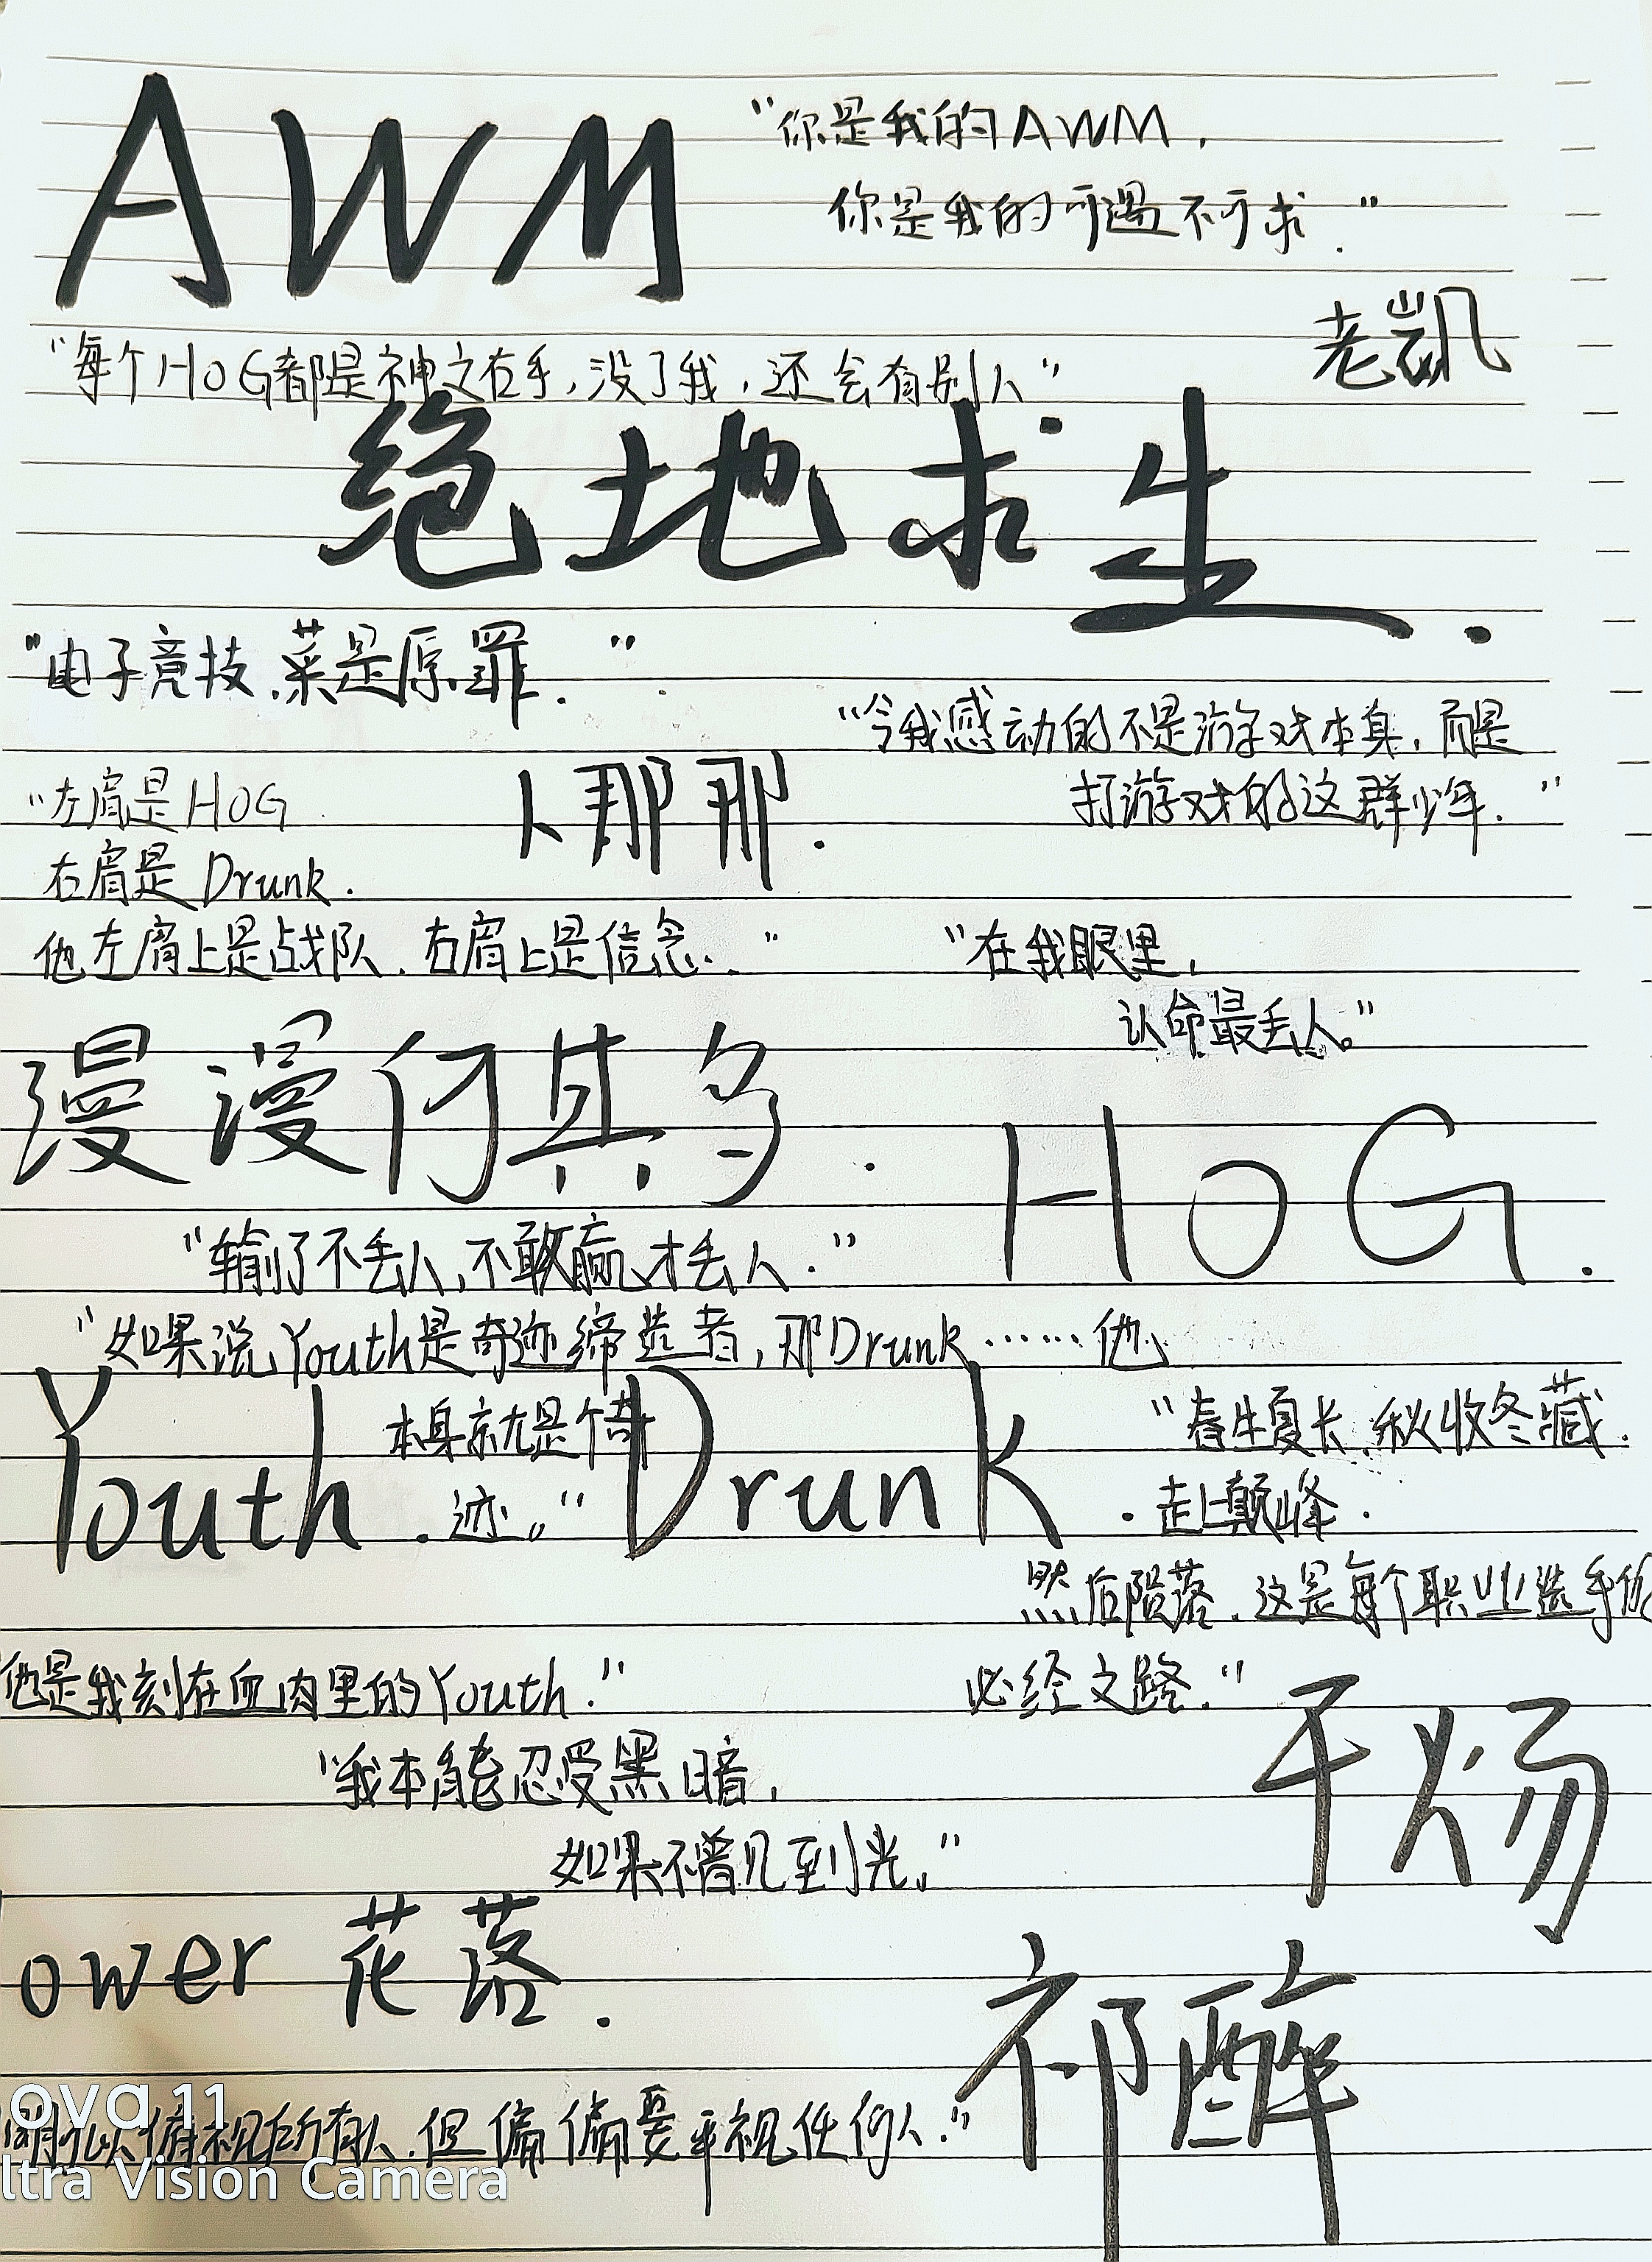 AWM
"你是我的AWM,
你是我的可遇不可求."
老凯
"每个HOG都是神之右手,没了我,还会有别人"
绝地求生.
"电子竞技,菜是原罪."
"令我感动的不是游戏本身,而是
打游戏的这群少年."
卜那那.
"左肩是HOG
右肩是Drunk.
他左肩上是战队,右肩上是信念."
"在我眼里,
认命最丢人。"
漫漫何其多.
HOG.
"输了不丢人,不敢赢才丢人."
"如果说Youth是奇迹缔造者,那Drunk……他
本身就是个奇
迹。"
Youth.
Drunk.
"春生夏长,秋收冬藏.
走上巅峰.
然后陨落,这是每个职业选手的
必经之路."
他是我刻在血肉里的Youth."
于炀
"我本能忍受黑暗,
如果不曾见到光,"
ower 花落.
祁醉
明明可以俯视所有人,但偏偏要平视任何人."
ova 11
ltra Vision Camera